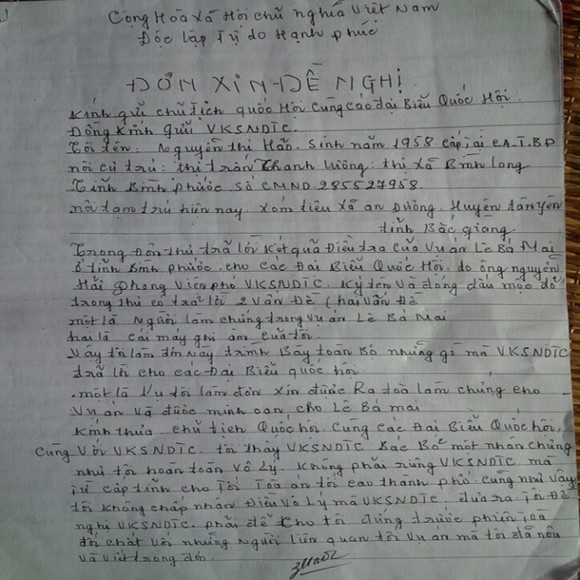 Cộng Hoà Xã Hội chủ nghĩa Việt Nam
Độc lập Tự do Hạnh phúc
ĐƠN XIN ĐỀ NGHỊ
Kính gửi chủ tịch quốc Hội cùng các đại Biểu Quốc Hội
Đồng kính gửi VKSNDTC.
Tôi tên: Nguyễn thị Hảo. Sinh năm 1958. cấp tại CA.T.BP
nơi cư trú: thị trấn Thanh Lương: thị xã Bình Long
Tỉnh Bình phước số CMND 285527958
nơi tạm trú hiện nay xóm tiêu xã an Dương. Huyện tân yên
tỉnh Bắc giang
Trong Đơn thư trả lời kết quả Điều tra của vụ án Lê Bá Mai
ở tỉnh Bình phước. cho các Đại Biểu Quốc Hội. do ông nguyễn
Hải phong Viện phó VKSNDTC. ký tên và đóng dấu mọc đỏ
trong thư có trả lời 2 vấn Đề (hai vấn Đề
một là Người làm chứng trong vụ án Lê Bá Mai
hai là cái máy ghi âm của tôi.
Vậy tôi làm đơn này trình Bày toàn Bộ những gì mà VKSNDTC
trả lời cho các Đại Biểu quốc hội
một là tôi làm đơn xin được Ra toà làm chứng cho
vụ án và được minh oan cho Lê Bá mai
kính thưa chủ tịch Quốc hội. cùng các Đại Biểu Quốc hội.
cùng với VKSNDTC. tôi thấy VKSNDTC Bác Bỏ một nhân chứng
như tôi hoàn toàn vô lý. không phải riêng VKSNDTC mà
từ cấp tỉnh cho Tới Toà án tối cao thành phố. cũng như vậy
tôi không chấp nhận Điều vô lý mà VKSNDTC. đưa ra tôi Đề
nghị VKSNDTC. phải để cho tôi đứng trước phiên toà
đối chất với những người liên quan tới vụ án mà tôi đã nêu
và viết trong đơn.